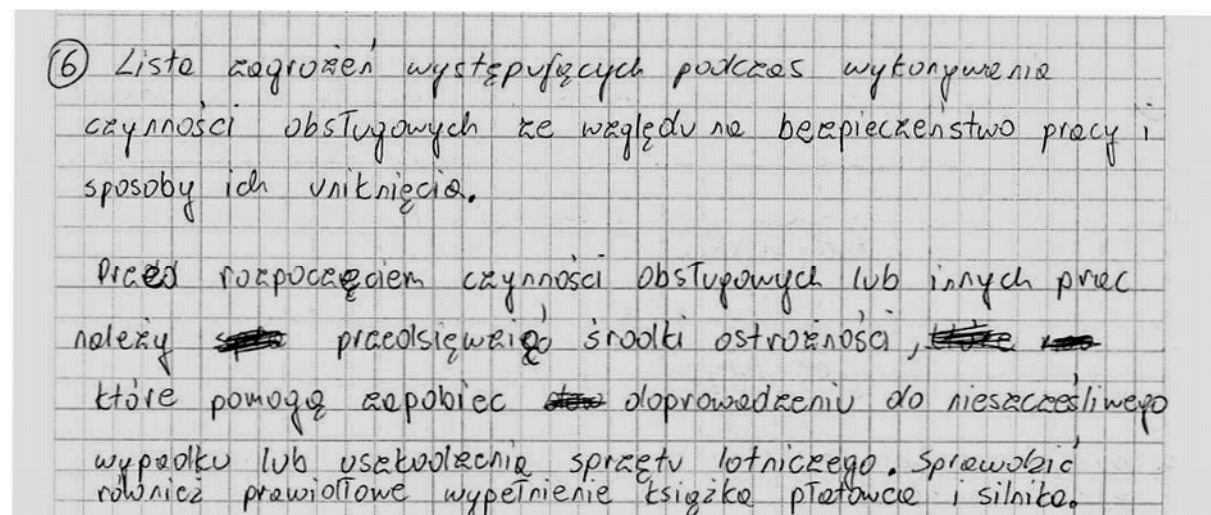 ⑥ Lista zagrożeń występujących podczas wykonywania
czynności obsługowych ze względu na bezpieczeństwo pracy i
sposoby ich uniknięcia.
Przed rozpoczęciem czynności obsługowych lub innych prac
należy przedsięwziąć środki ostrożności,
które pomogą zapobiec doprowadzeniu do nieszcześliwego
wypadku lub uszkodzenia sprzętu lotniczego. Sprawdzić
również prawidłowe wypełnienie książka płatowca i silnika.